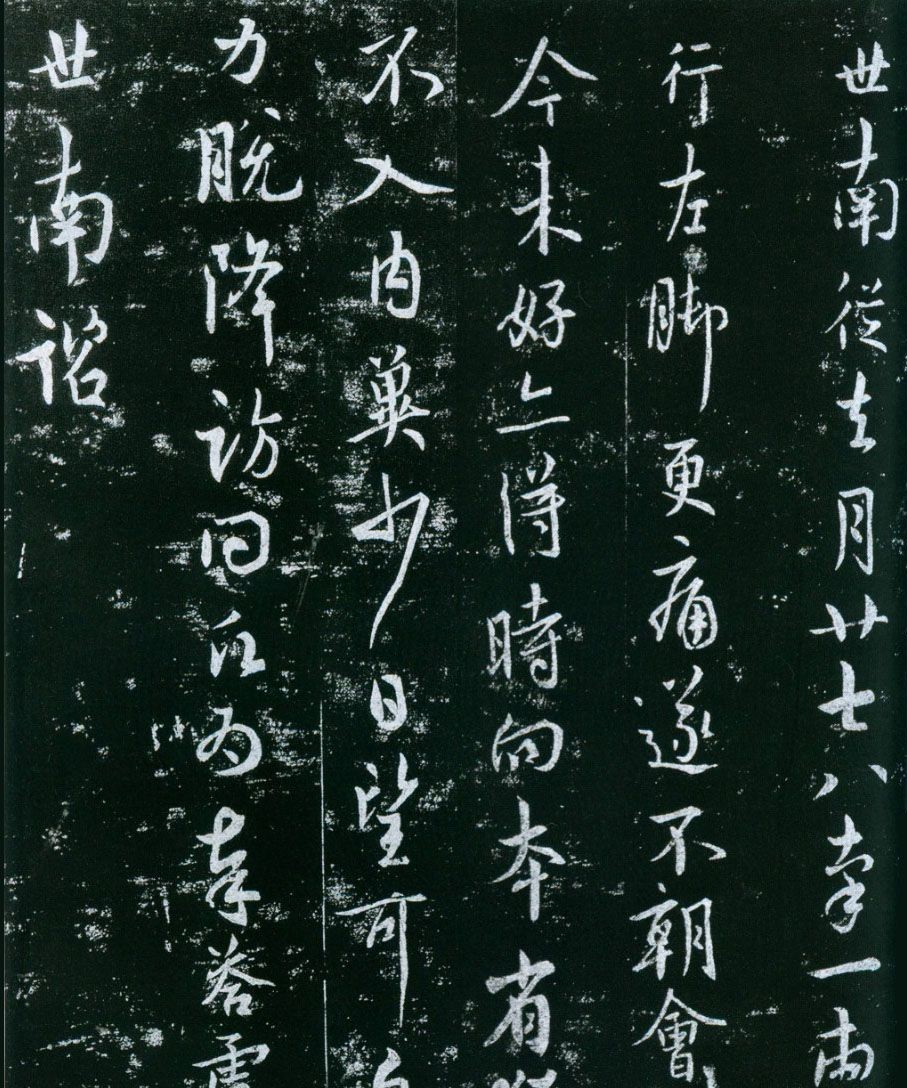 世南從去月廿七八率一兩
行左脚更痛遂不朝會
今未好亦得時向本省
不入內冀少日望可
力脫降訪問丘為奉荅虞
世南諮